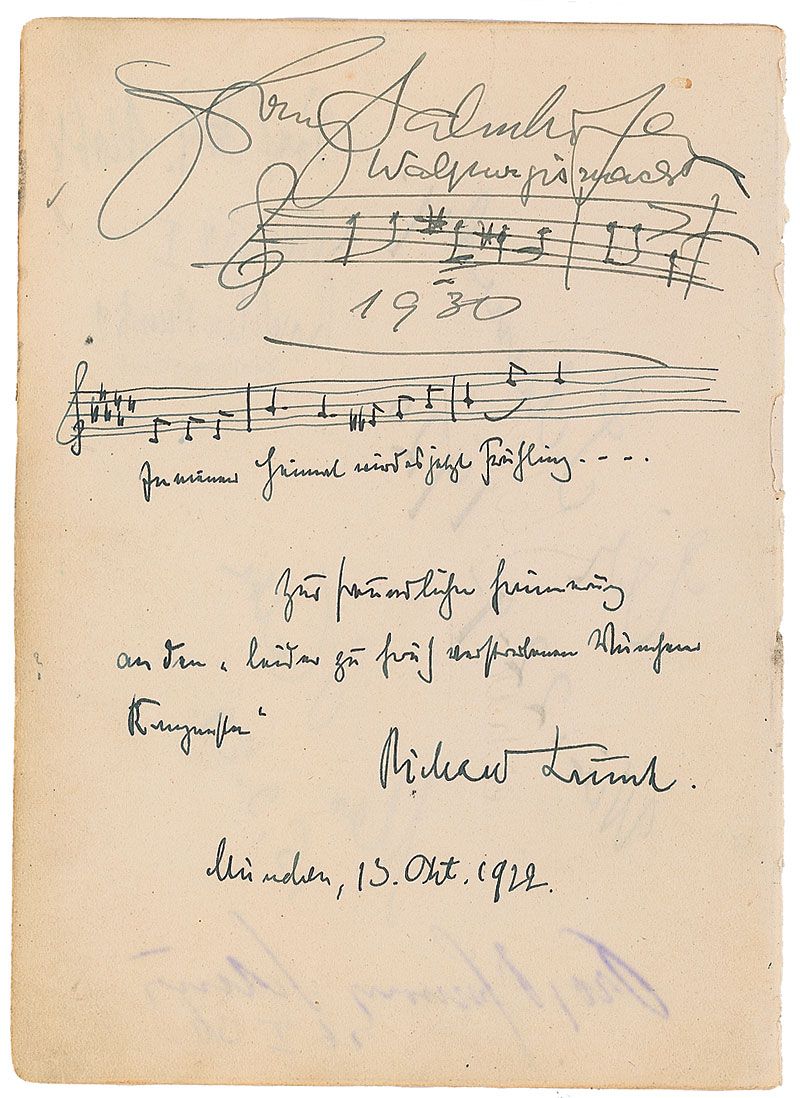 Franz Salmhofer
Walpurgisnacht
1930
In meiner Heimat wird es jetzt Frühling. . . .
Zur freundlichen Erinnerung
an den „leider zu früh verstorbenen Münchener
Komponisten“
Richard Trunk.
München, 13. Okt. 1922.